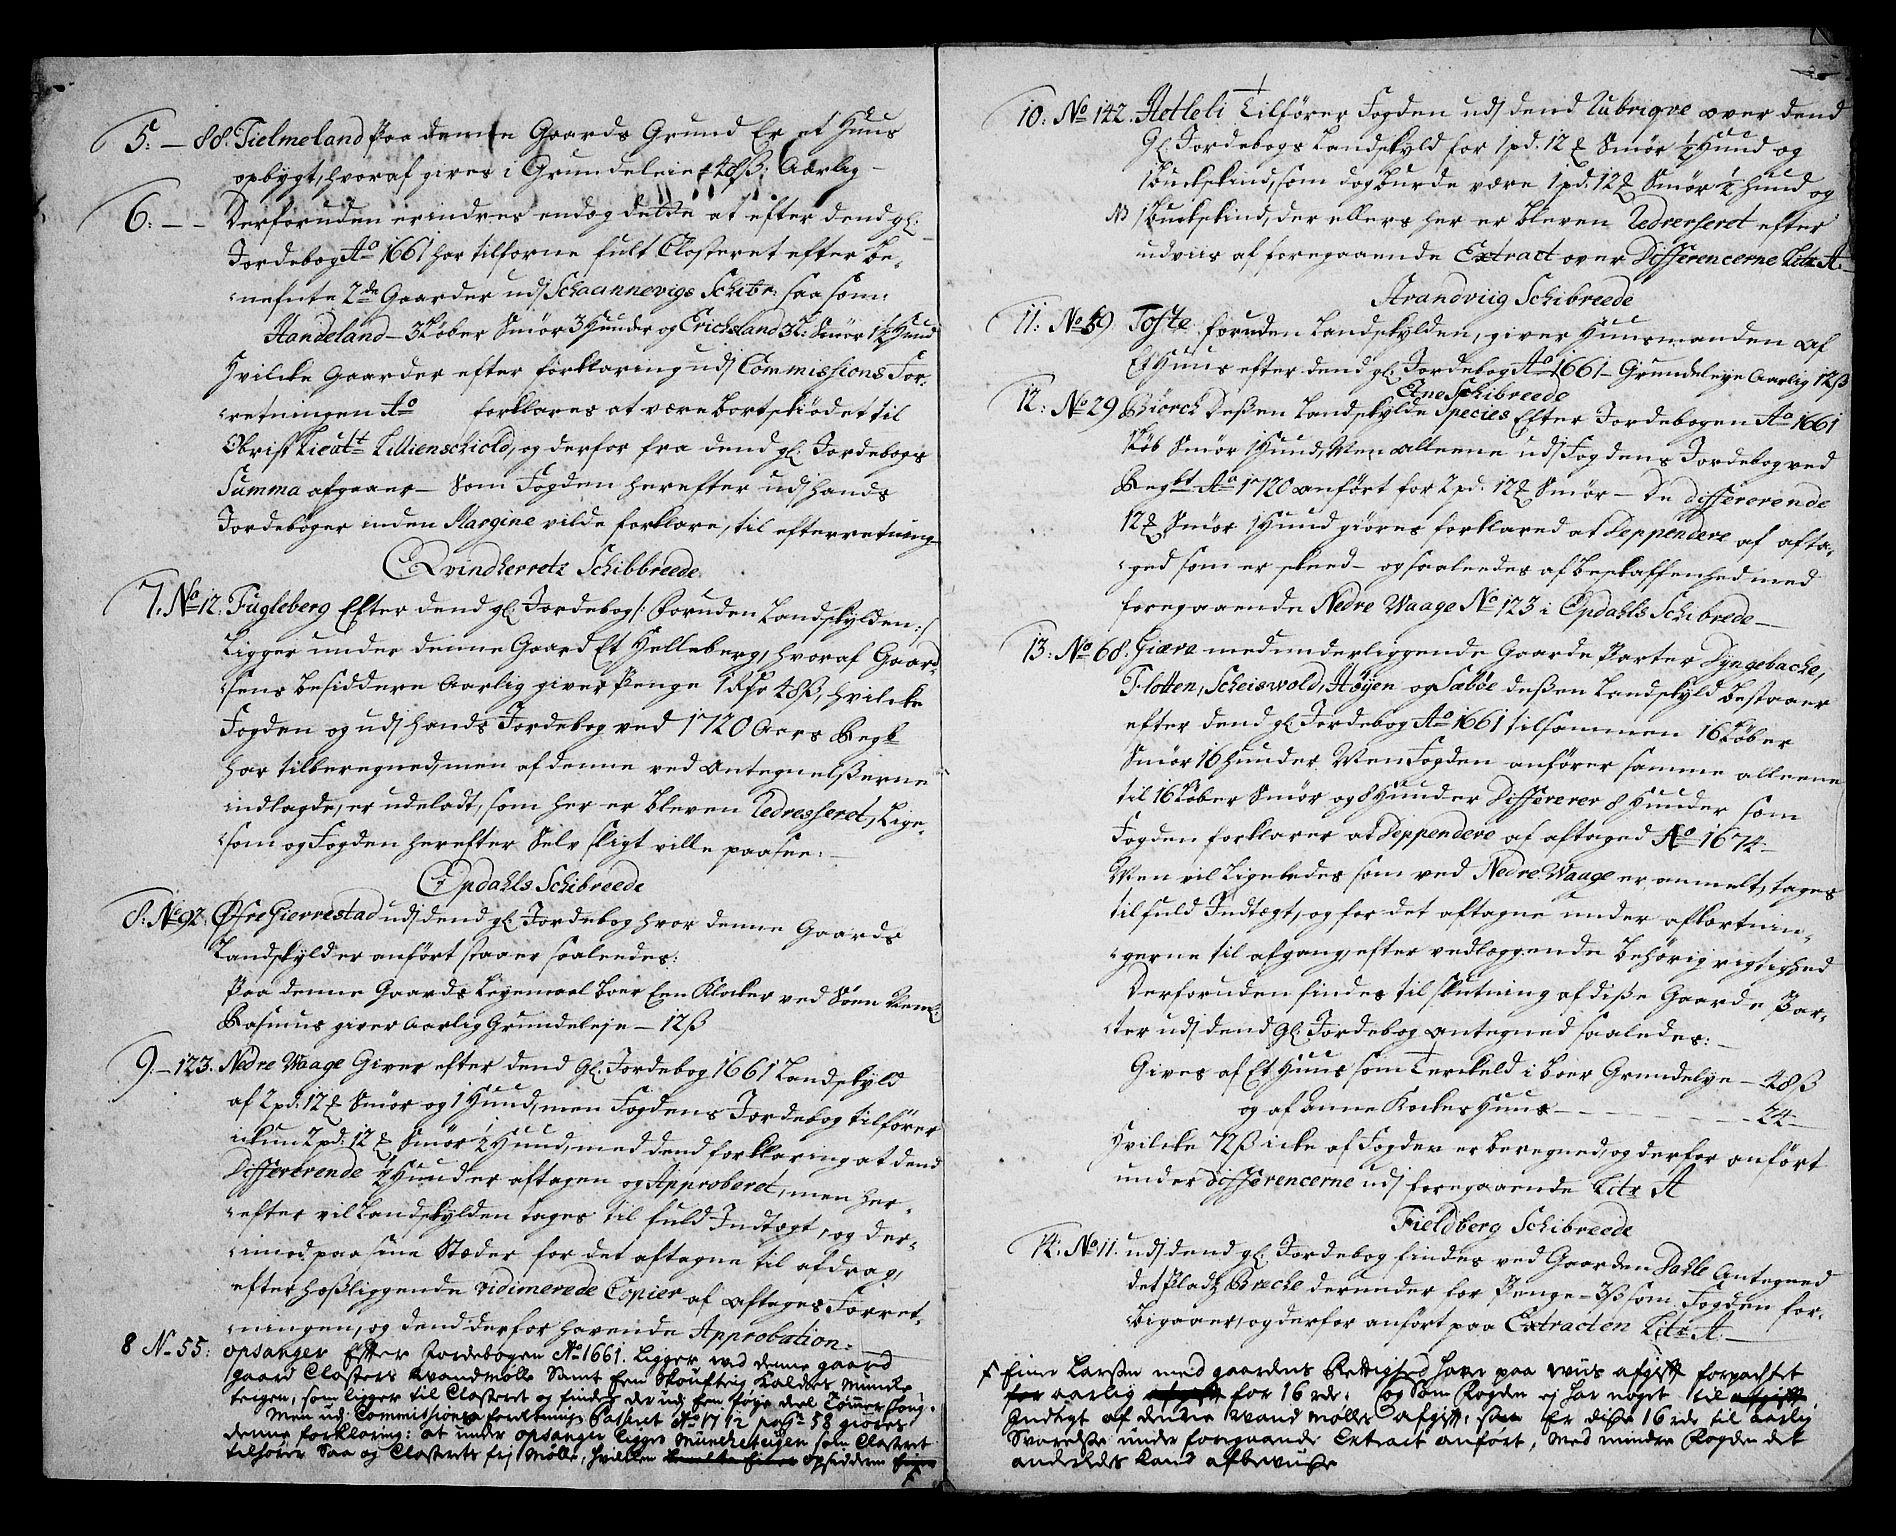 5: — 88. Tielmeland Paa denne Gaards Grund Er et Huus
opbÿgt, hvoraf gives i Grundeleie 48ß: Aarlig —
6: — — Derforuden erindres endog dette at efter dend gl:
Jordebog Aº 1661 har tilforne fult Closteret efter be-
nefnte 2de Gaarder udj Schaannevigs Schibr: saasom:
Handeland — 3 Løber Smør 3 Hunder og Erichsland 3 L: Smør 1½ Hund
Hvilcke Gaarder efter forklaring udj Commissions For-
retningen Aº forklares at være bortskiødet til
Obrist Lieutt Lillienschiold, og derfor fra dend gl: Jordebogs
Summa afgaaer — Som Fogden herefter udj hands
Jordebøger inden Margine vilde forklare, til efterretning —
Qvindherretz Schibbreede
7. No 12. Fugleberg Efter dend gl: Jordebog /: Foruden Landskylden :/
Ligger under denne Gaard Et Helleberg, hvoraf Gaard-
sens besiddere Aarlig giver Penge 1 Rdr 48ß, hvilcke
Fogden og udj hands Jordebog ved 1720 Aars Regsk
har tilberegned, men af denne ved Antegnelsserne
indlagde, er udeladt, som her er bleven Redresseret, Lige-
som og Fogden herefter Selv sligt ville paasee: —
Opdahls Schibreede
8: No 92: Øfre Gierrestad udj dend gl: Jordebog hvor denne Gaards
Landskyld er anført staaer saaledes:
Paa denne Gaards Leyemaal boer Een Klocker ved Nafn
Rasmus giver Aarlig Grundeleje — 12ß
9. — 123. Nedre Waage Giver efter dend gl: Jordebog 1661 Landskyld
af 2 pd: 12 ℔ Smør og 1 Hund, men Fogdens Jordebog tilfører
ickun 2 pd: 12 ℔ Smør ½ Hund, med dend forklaring at dend
Differerende ½ Hund er aftagen og Approberet, men her-
efter vil Landskylden tages til fuld Indtægt, og der-
imod paa sine Stæder for det aftagne til afdrag,
efter hosliggende vidimerede Copier af Aftages Forret-
ningen, og dend derfor havende Approbation: —
8 N- 55: opsanger Efter Jordebogen No 1661. Ligger ved denne gaard
gaard Closters Qvandmølle Samt Een Skoufteig kaldes Muncke
teigen, som ligger til Closteret og findes der udj Een føje deel
Men udj Commissions forretnings Passeret Aº 1712 pag: 58 giøres
denne forklaring: at under opsanger ligger Munckteigen som Closteret
tilhører Saa og Closterets frj Mølle, hvilken opsidderen
10: No 142. Hetleli Tilfører Fogden udj dend Rubriqve over dend
gl: Jordebogs Landskyld for 1 pd. 12 ℔ Smør ½ Hund og
1 Buckskind, som dog burde være 1 pd: 12 ℔ Smør ½ Hund og
NB 1 Buckskind, der ellers her er bleven Redresseret efter
udviis af foregaaende Extract over Differencerne Litr A. —
Strandviig Schibreede
11: No 59 Tofte foruden Landskylden, giver Huusmanden af
Et Huus efter dend gl: Jordebog Aº 1661 — Grundeleye Aarlig 12ß
Ene Schibreede
12: No 29 Biørck Dessen Landskylds Species Efter Jordebogen Aº 1661
Løb Smør 1 Hund, Men alleene udj Fogdens Jordebog ved
Regskt Aº 1720 anført for 2 pd. 12 ℔ Smør — De differerende
12 ℔ Smør 1 Hund giøres forklared at Deppendere af afta-
ged som er skeed — og saaledes af beskaffenhed med
foregaaende Nedre Waage No 123 i Opdahls Schibrede —
13: No 68. Giæra med underliggende Gaarde Parter Dyngebacke,
Flotten, Scheiswold, Høÿen og Sæbøe dessen Landskyld bestaaer
efter dend gl: Jordebog Aº 1661 tilsammen 16 Løber
Smør 16 Hunder Men Fogden anfører samme alleene
til 16 Løber Smør og 8 Hunder Differerer 8 Hunder som
Fogden forklarer at Deppendere af aftaged Aº 1674 —
Men vil Ligeledes som ved Nedre Waage er anmelt, tages
til fuld Indtægt, og for det aftagne under afkortnin-
gerne til afgang, efter vedlæggende behørig rigtighed
Derforuden findes til slutning af disse Gaarde Par-
ter udj dend gl: Jordebog antegned saaledes: —
Gives af Et Huus som Terckeld i boer Grundelye — 48ß
og af Anne Kockes Huus — — — — — 24 —
Hvilcke 72ß icke af Fogden er beregned, og derfor anført
under differencerne udj foregaaende Litr A
Fieldberg Schibreede
14: No 11. udj dend gl: Jordebog findes ved Gaarden Dahle Antegned
det Pladz Brecke derunder for Penge — 3ß som Fogden for-
bigaaer, og derfor anført paa Extracten Litr A. —
Einer Larsen med gaardens Rettighed have paa viis afgift forpachtet
for aarlig afgift for 16 rdr. og Som Fogden ej har noget til afgift
Indtægt af denne Qvand Mølles afgift, saa Er disse 16 rdr til aarlig
Svarelse under foregaaende Extract anført, med mindre Fogden det
anderledes kand afbeviise